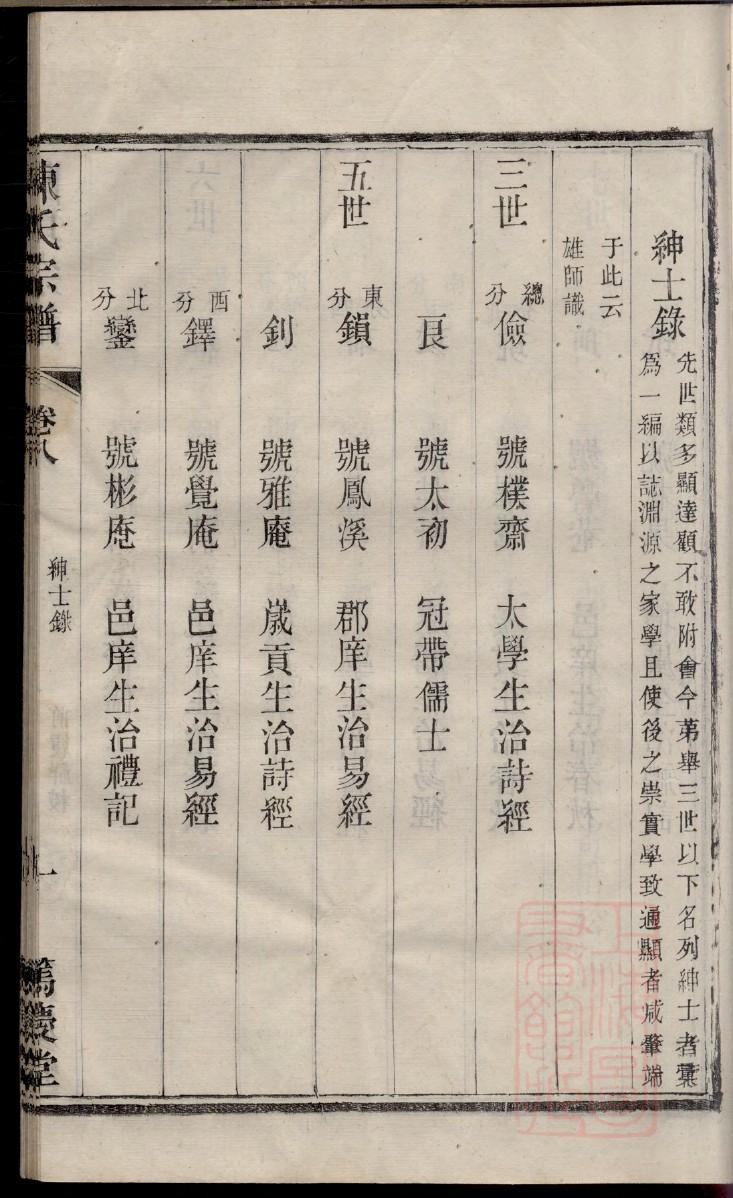 紳士錄
先世類多顯達顧不敢附會今第舉三世以下名列紳士者彙
爲一編以誌淵源之家學且使後之崇實學致通顯者咸肇端
于此云
雄師識
三世 總分 儉 號樸齋 太學生治詩經
良 號太初 冠帶儒士
五世 東分 鎖 號鳳溪 郡庠生治易經
釗 號雅庵 歲貢生治詩經
西分 鐸 號覺庵 邑庠生治易經
北分 鑾 號彬庵 邑庠生治禮記
陳氏宗譜 卷八 紳士錄 一 篤慶堂